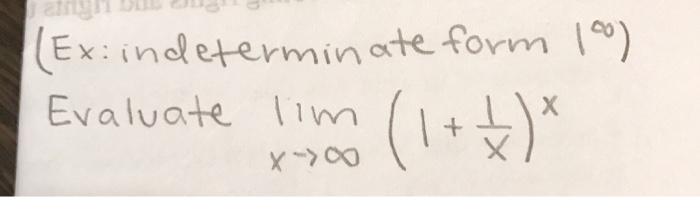 (Ex: indeterminate form 1^∞)
Evaluate lim x->∞ (1 + 1/x)^x